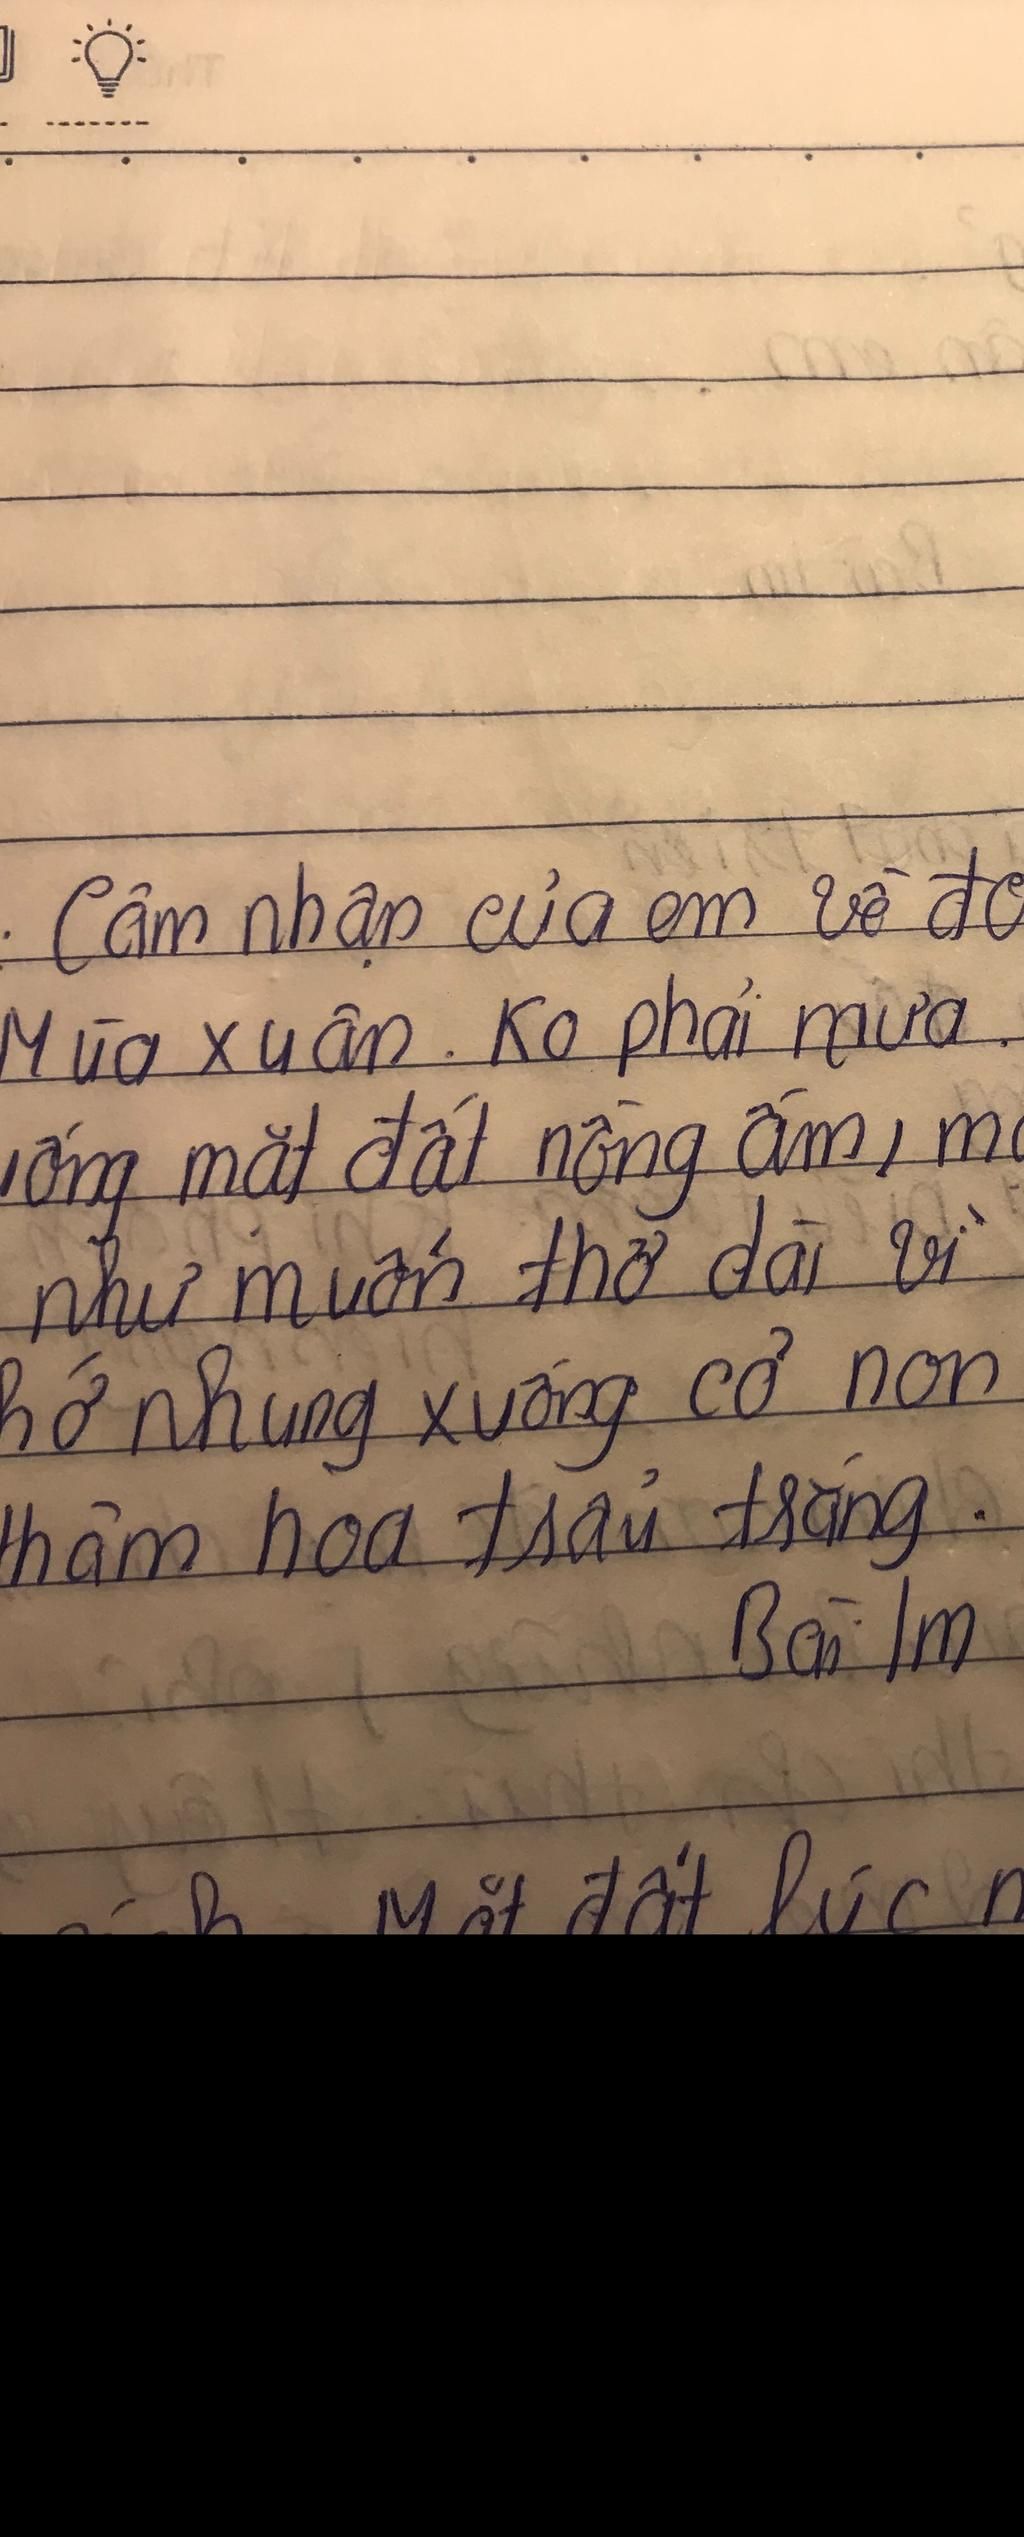 Cảm nhận của em về
Mùa xuân. Ko phải mưa.
mặt đất nồng ấm, m
như muốn thở dài vì
nhung xuống cỏ non
thảm hoa trẩu trắng.
Bài lm
Mặt đất lúc